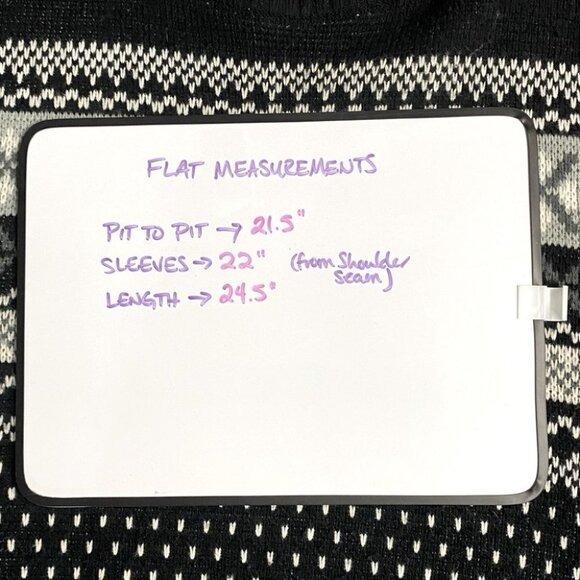 FLAT MEASUREMENTS
PIT TO PIT → 21.5"
SLEEVES → 22" (from shoulder seam)
LENGTH → 24.5"